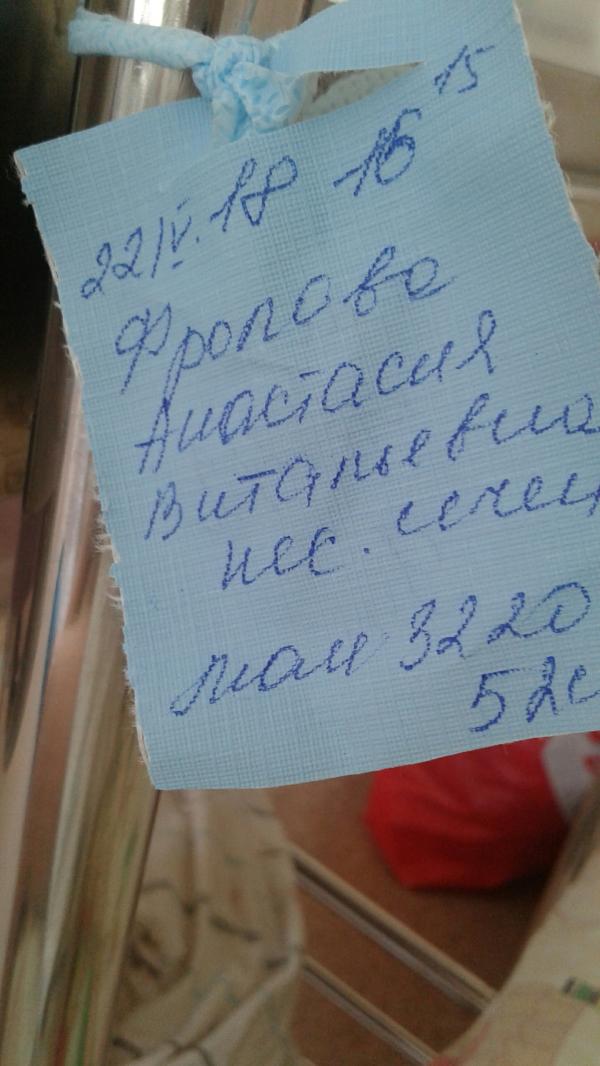 22/IV.18 16 15
Фролова
Анастасия
Витальевна
кес. сечен
мал 3220
52с